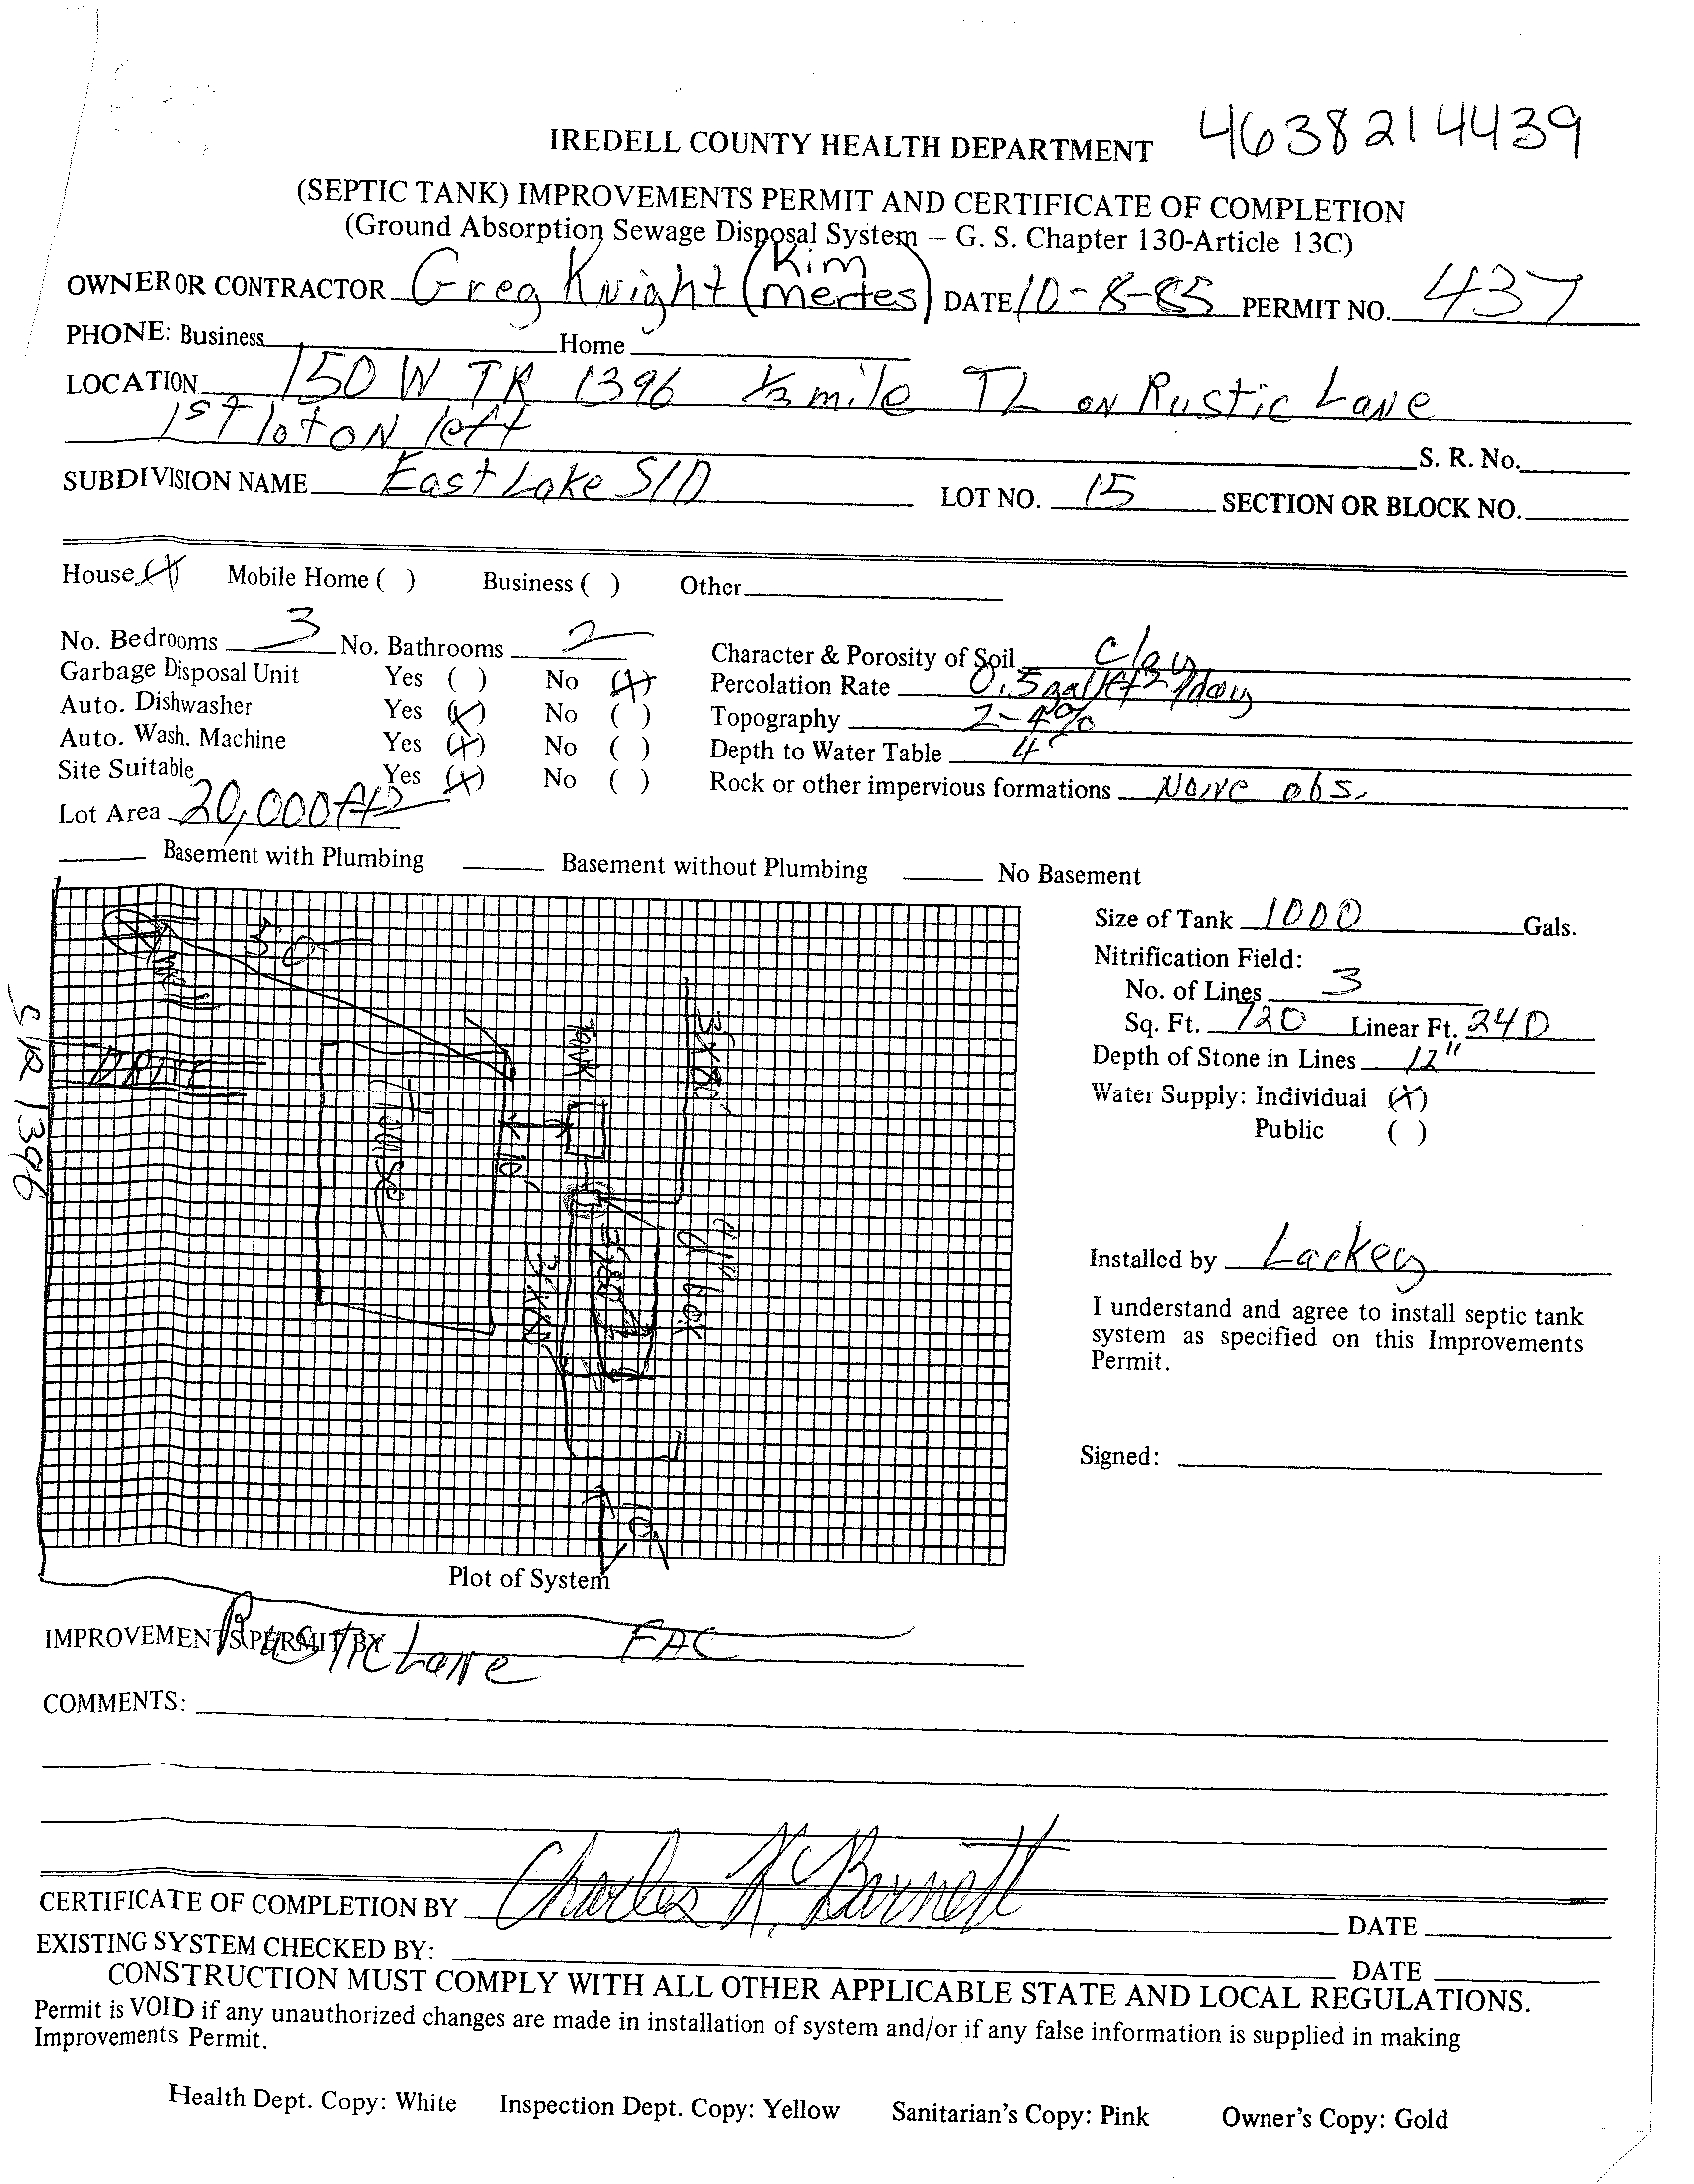 4638214439
IREDELL COUNTY HEALTH DEPARTMENT
(SEPTIC TANK) IMPROVEMENTS PERMIT AND CERTIFICATE OF COMPLETION
(Ground Absorption Sewage Disposal System – G. S. Chapter 130-Article 13C)
OWNER OR CONTRACTOR Greg Knight (Kim Mertes) DATE 10-8-85 PERMIT NO. 437
PHONE: Business Home
LOCATION 150 W TR 1396 1/3 mile TL ON Rustic Lane
1st lot ON left
S. R. No.
SUBDIVISION NAME East Lake S/D LOT NO. 15 SECTION OR BLOCK NO.
House (X) Mobile Home ( ) Business ( ) Other
No. Bedrooms 3 No. Bathrooms 2 Character & Porosity of Soil Clay
Garbage Disposal Unit Yes ( ) No (X) Percolation Rate 0.5 gal/ft2/day
Auto. Dishwasher Yes (X) No ( ) Topography 2-4%
Auto. Wash. Machine Yes (X) No ( ) Depth to Water Table 4'
Site Suitable Yes (X) No ( ) Rock or other impervious formations None obs.
Lot Area 20,000 ft2
Basement with Plumbing Basement without Plumbing No Basement
Size of Tank 1000 Gals.
Nitrification Field:
No. of Lines 3
Sq. Ft. 720 Linear Ft. 240
Depth of Stone in Lines 12"
Water Supply: Individual (X)
Public ( )
Installed by Lackey
I understand and agree to install septic tank
system as specified on this Improvements
Permit.
Signed:
SR 1396
50
Drive
House
10'
Tank
3X80'
3X80
3X80'
10'
Plot of System
IMPROVEMENTS PERMIT BY FAC
Rustic Lane
COMMENTS:
CERTIFICATE OF COMPLETION BY Charles K. Barnett DATE
EXISTING SYSTEM CHECKED BY: DATE
CONSTRUCTION MUST COMPLY WITH ALL OTHER APPLICABLE STATE AND LOCAL REGULATIONS.
Permit is VOID if any unauthorized changes are made in installation of system and/or if any false information is supplied in making
Improvements Permit.
Health Dept. Copy: White Inspection Dept. Copy: Yellow Sanitarian's Copy: Pink Owner's Copy: Gold